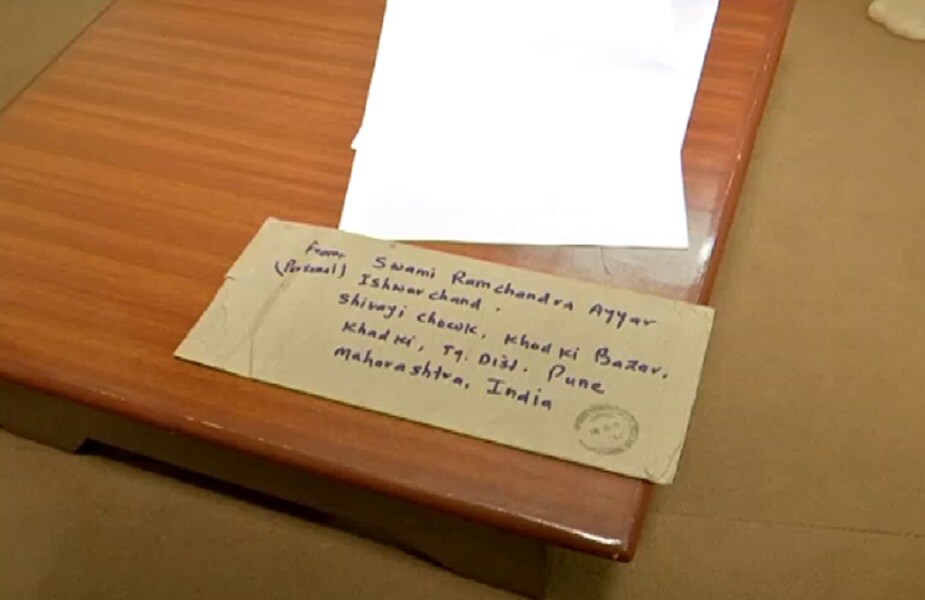 From,
(Personal)
Swami Ramchandra Ayyar
Ishwarchand.
Shivaji Chowk, Khadki Bazar,
Khadki, Tq. Dist. Pune
Maharashtra, India